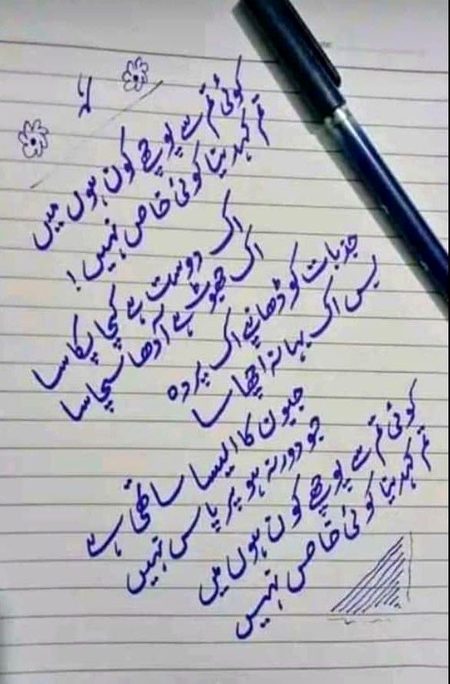 کوئی تم سے پوچھے کون ہوں میں
تم کہدینا کوئی خاص نہیں!
اک دوست ہے کچا پکا سا
اک جھوٹ ہے آدھا سچا سا
جذبات کو ڈھانپے اک پردہ
بس اک بہانہ اچھا سا
جیون کا ایسا ساتھی ہے
جو دور نہ ہو پر پاس نہیں
کوئی تم سے پوچھے کون ہوں میں
تم کہدینا کوئی خاص نہیں